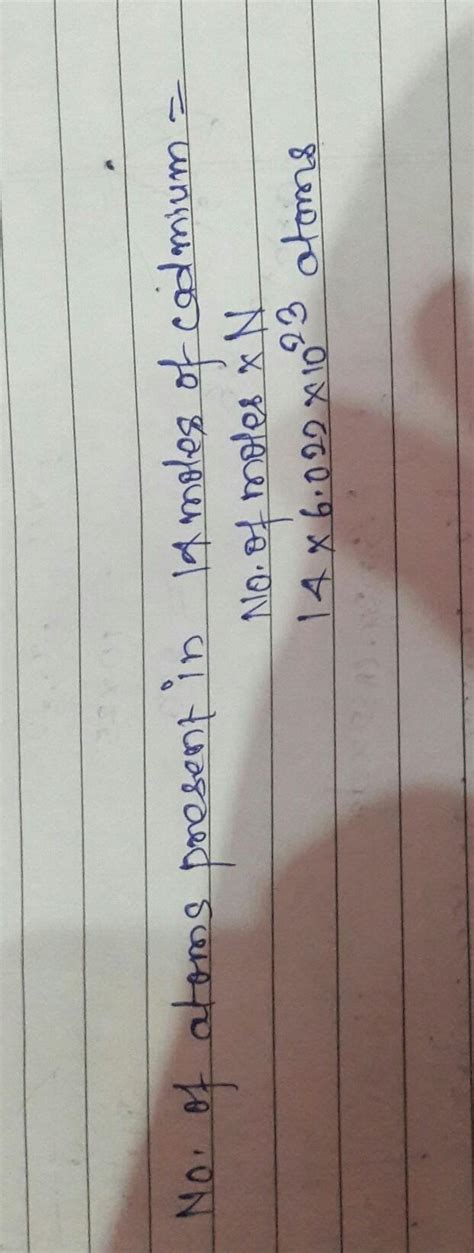 No. of atoms present in 14 moles of cadmium =
No. of moles × N
14 × 6.022 × 10²³ atoms